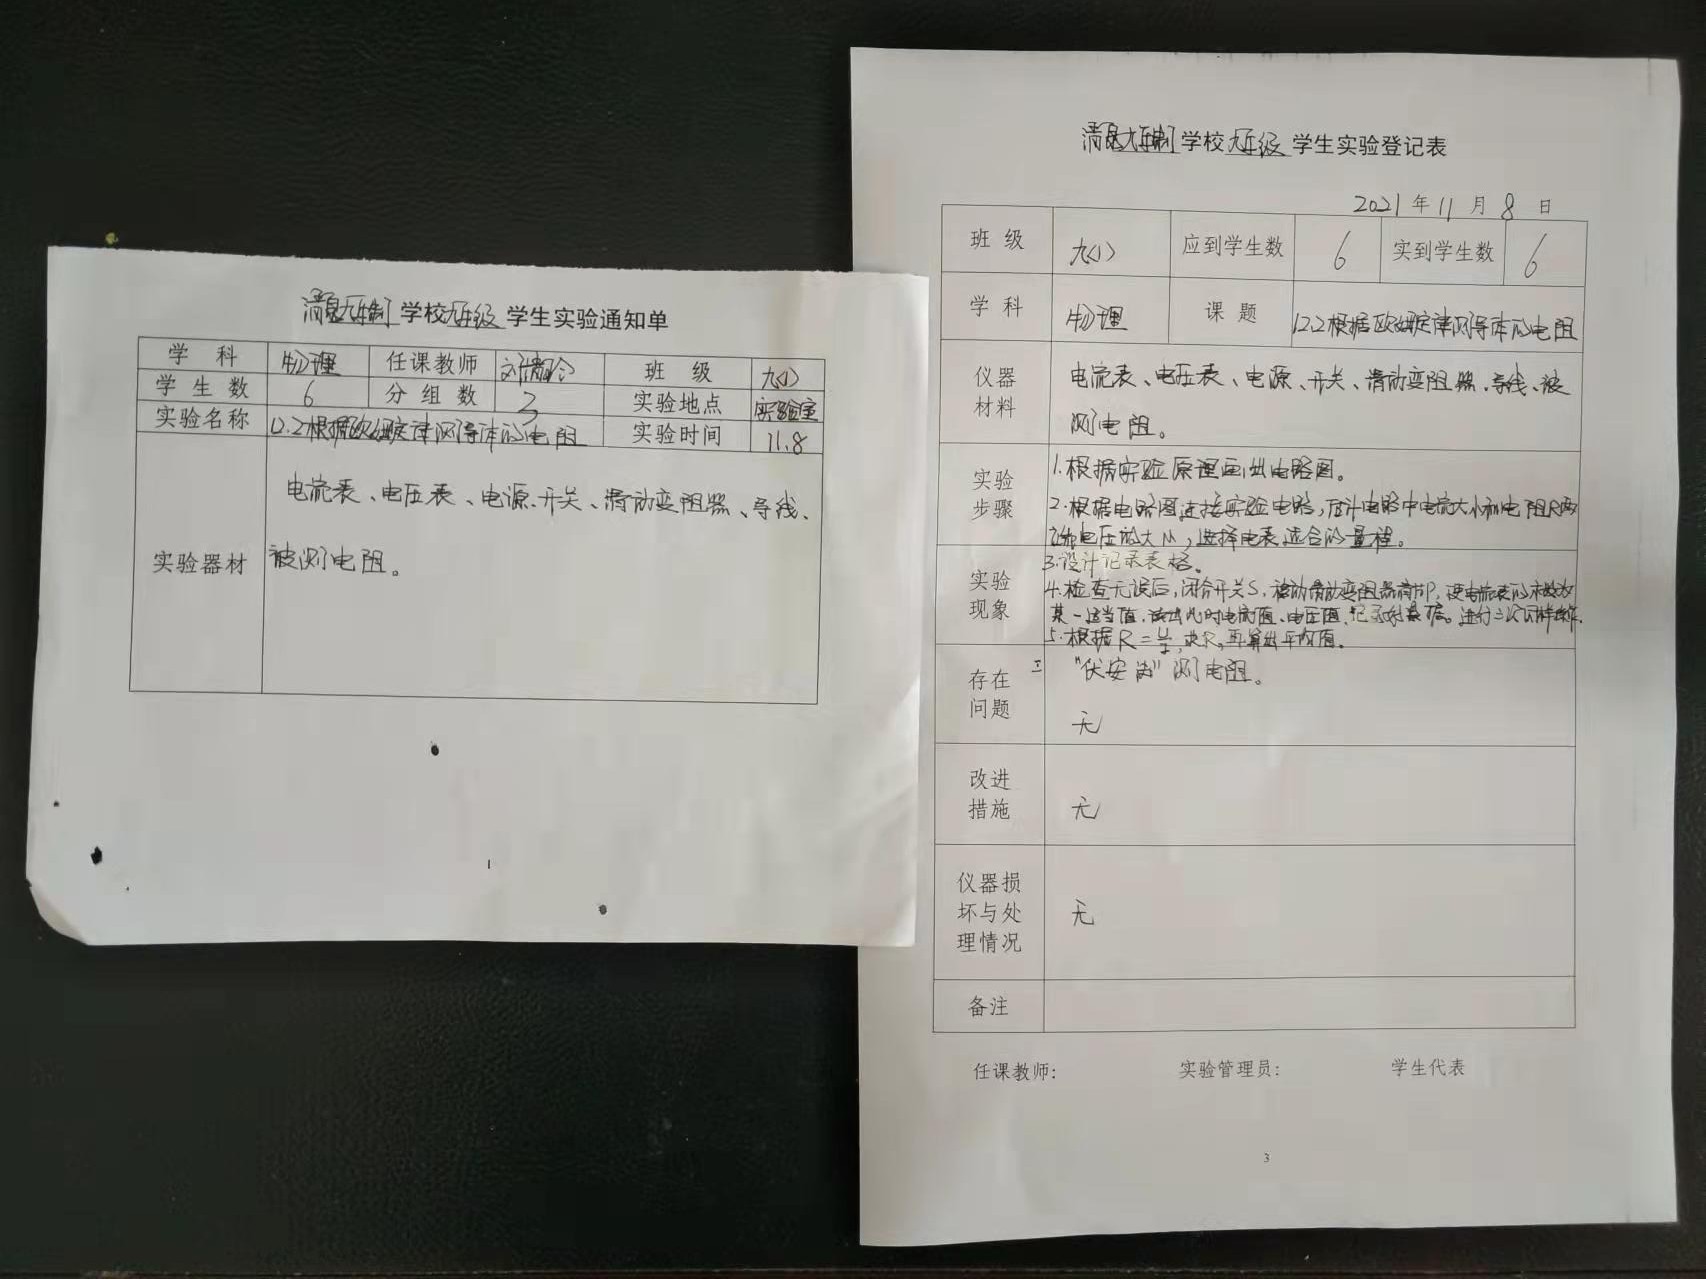 九年制学校九年级学生实验通知单
学科 物理 任课教师 班级 九(1)
学生数 6 分组数 3 实验地点 实验室
实验名称 12.2根据欧姆定律测导体的电阻 实验时间 11.8
实验器材
电流表、电压表、电源、开关、滑动变阻器、导线、
被测电阻。
1
九年制学校九年级学生实验登记表
2021年11月8日
班级 九(1) 应到学生数 6 实到学生数 6
学科 物理 课题 12.2根据欧姆定律测导体的电阻
仪器
材料
电流表、电压表、电源、开关、滑动变阻器、导线、被
测电阻。
实验
步骤
1.根据实验原理画出电路图。
2.根据电路图连接实验电路,估计电路中电流大小和电阻R两
端电压的大小,选择电表适合的量程。
实验
现象
3.设计记录表格。
4.检查无误后,闭合开关S,移动滑动变阻器滑片P,使电流表的示数为
某一适当值,读出此时电流值、电压值,记录表格。进行三次同样操作.
5.根据R=U/I,求R,再算出平均值。
存在
问题
"伏安法"测电阻。
无
改进
措施
无
仪器损
坏与处
理情况
无
备注
任课教师: 实验管理员: 学生代表
3